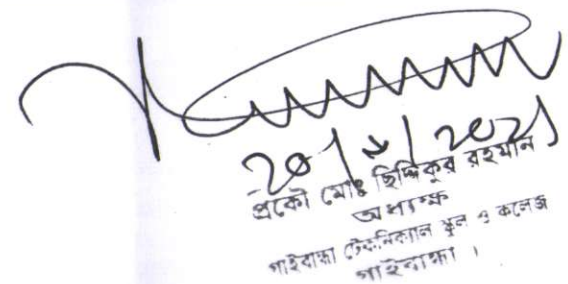 20/ /2021
প্রকৌ মোঃ ছিদ্দিকুর রহমান
অধ্যক্ষ
গাইবান্ধা টেকনিক্যাল স্কুল ও কলেজ
গাইবান্ধা ।